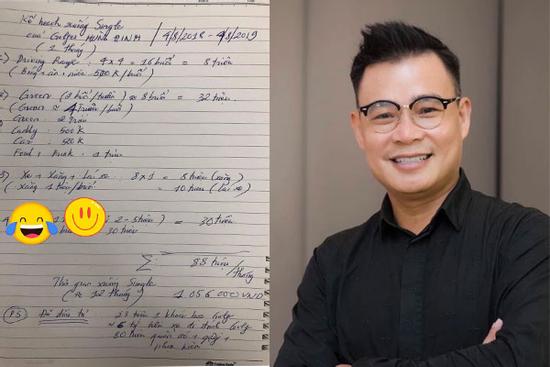 Kế hoạch xuống Single
của Golfer HÙNG BINH / 4/8/2018 - 4/8/2019
(1 tháng)
Driving Range: 4 x 4 = 16 buổi = 8 triệu
500K / buổi)
Green (2 buổi/tuần) = 8 buổi = 32 triệu
(Green = 4 triệu / buổi)
Green: 2 triệu
Caddy: 500K
Car: 500K
Food + Drink: 1 triệu
3) Xe + Xăng + Lái xe: 8 x 1 = 8 triệu (xăng)
(Xăng 1 triệu/buổi = 10 triệu (lái xe)
2-5 triệu) = 30 triệu
30 triệu
Σ 88 triệu/tháng
Thời gian xuống Single
(= 12 tháng) 1.056.000 VND
P.S Đã đầu tư 23 triệu 1 khóa học Golf
6 tỷ tiền xe đi đánh Golf
50 triệu quần áo + giày +
phụ kiện